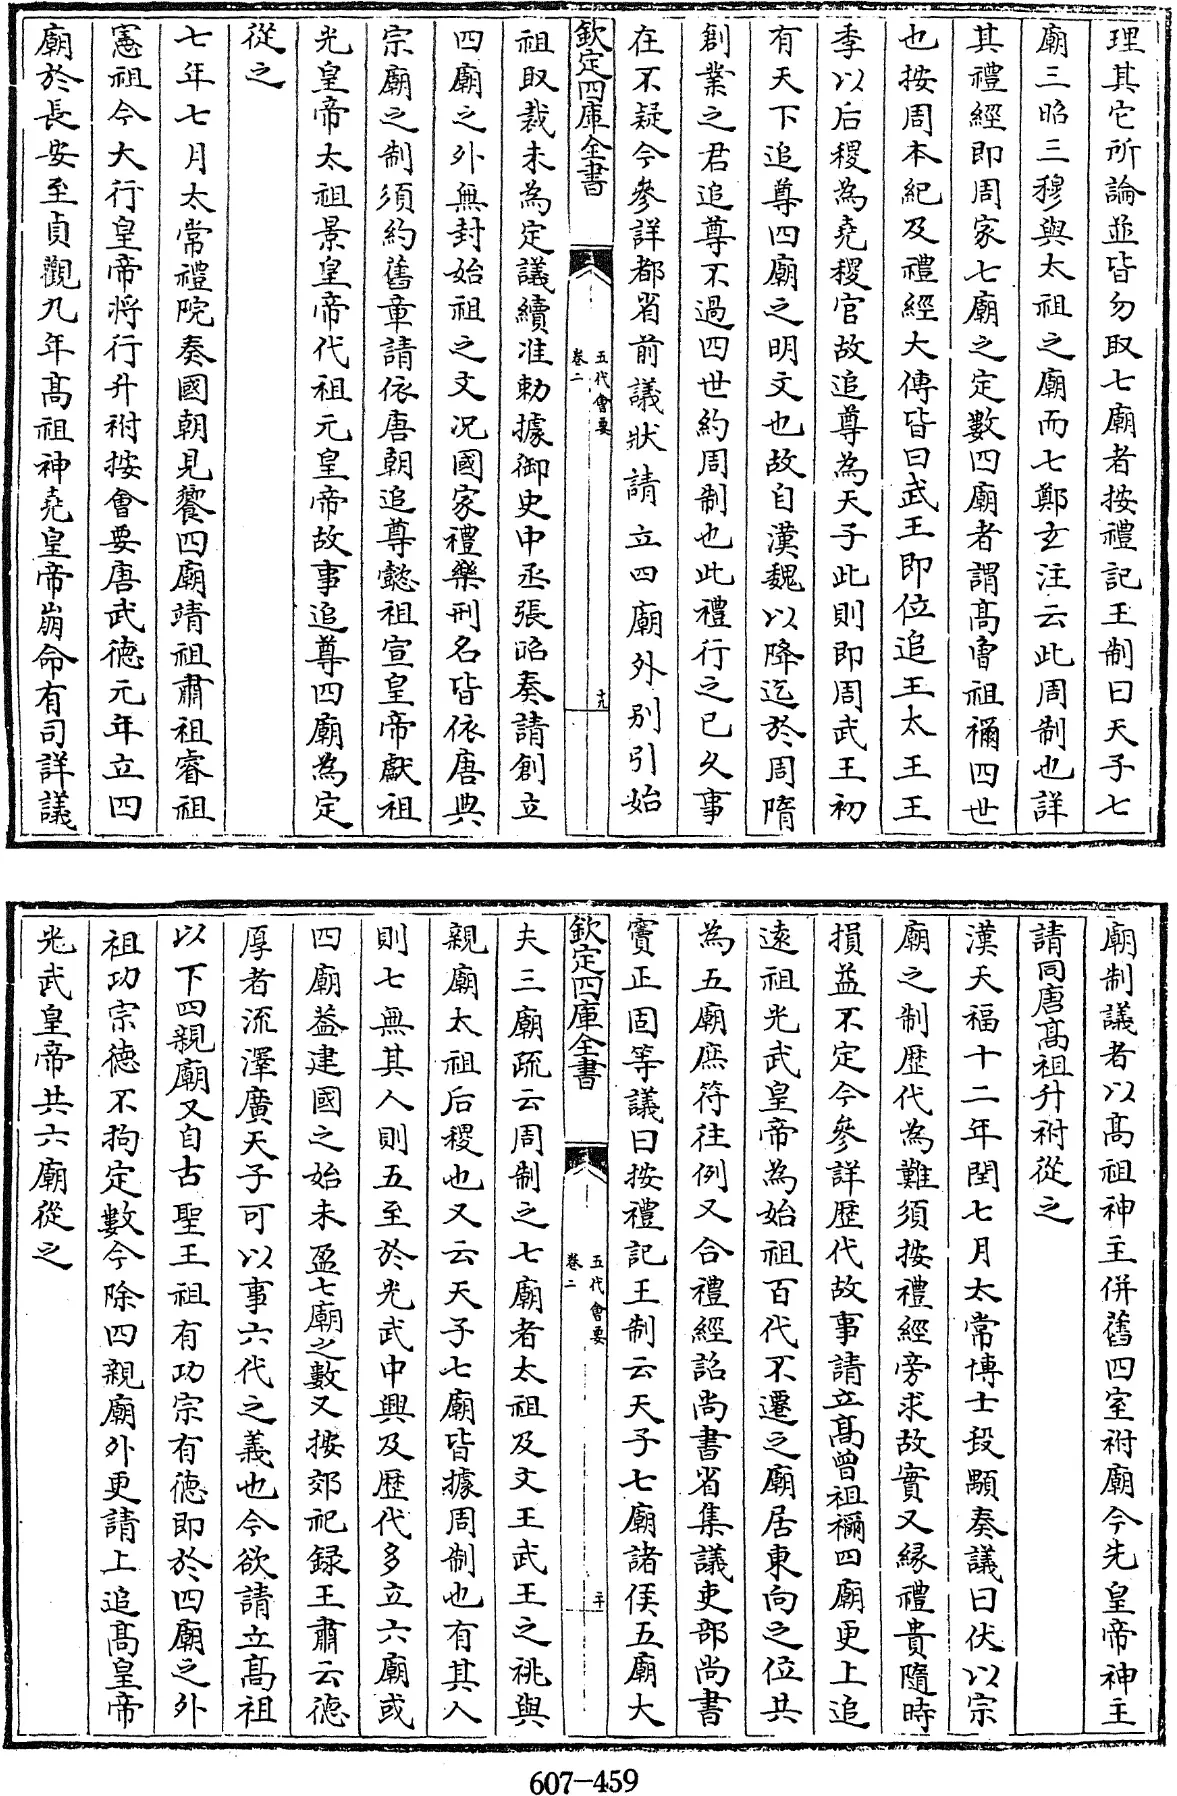 理其它所論並皆勿取七廟者按禮記王制曰天子七
廟三昭三穆與太祖之廟而七鄭玄注云此周制也詳
其禮經即周家七廟之定數四廟者謂髙曽祖禰四世
也按周本紀及禮經大傳皆曰武王即位追王太王王
季以后稷為堯稷官故追尊為天子此則即周武王初
有天下追尊四廟之明文也故自漢魏以降迄於周隋
創業之君追尊不過四世約周制也此禮行之已久事
在不疑今參詳都省前議狀請立四廟外别引始
欽定四庫全書
五代會要
卷二
十九
祖取裁未為定議續准勅據御史中丞張昭奏請創立
四廟之外無封始祖之文况國家禮樂刑名皆依唐典
宗廟之制須約舊章請依唐朝追尊懿祖宣皇帝獻祖
光皇帝太祖景皇帝代祖元皇帝故事追尊四廟為定
從之
七年七月太常禮院奏國朝見饗四廟靖祖肅祖睿祖
憲祖今大行皇帝將行升祔按會要唐武徳元年立四
廟於長安至貞觀九年髙祖神堯皇帝崩命有司詳議
廟制議者以髙祖神主併舊四室祔廟今先皇帝神主
請同唐髙祖升祔從之
漢天福十二年閏七月太常博士段顒奏議曰伏以宗
廟之制歴代為難須按禮經旁求故實又緣禮貴隨時
損益不定今參詳歴代故事請立髙曽祖禰四廟更上追
逺祖光武皇帝為始祖百代不遷之廟居東向之位共
為五廟庶符往例又合禮經詔尚書省集議吏部尚書
竇正固等議曰按禮記王制云天子七廟諸侯五廟大
欽定四庫全書
五代會要
卷二
二十
夫三廟疏云周制之七廟者太祖及文王武王之祧與
親廟太祖后稷也又云天子七廟皆據周制也有其人
則七無其人則五至於光武中興及歴代多立六廟或
四廟葢建國之始未盈七廟之數又按郊祀録王肅云徳
厚者流澤廣天子可以事六代之義也今欲請立髙祖
以下四親廟又自古聖王祖有功宗有徳即於四廟之外
祖功宗徳不拘定數今除四親廟外更請上追髙皇帝
光武皇帝共六廟從之
607-459